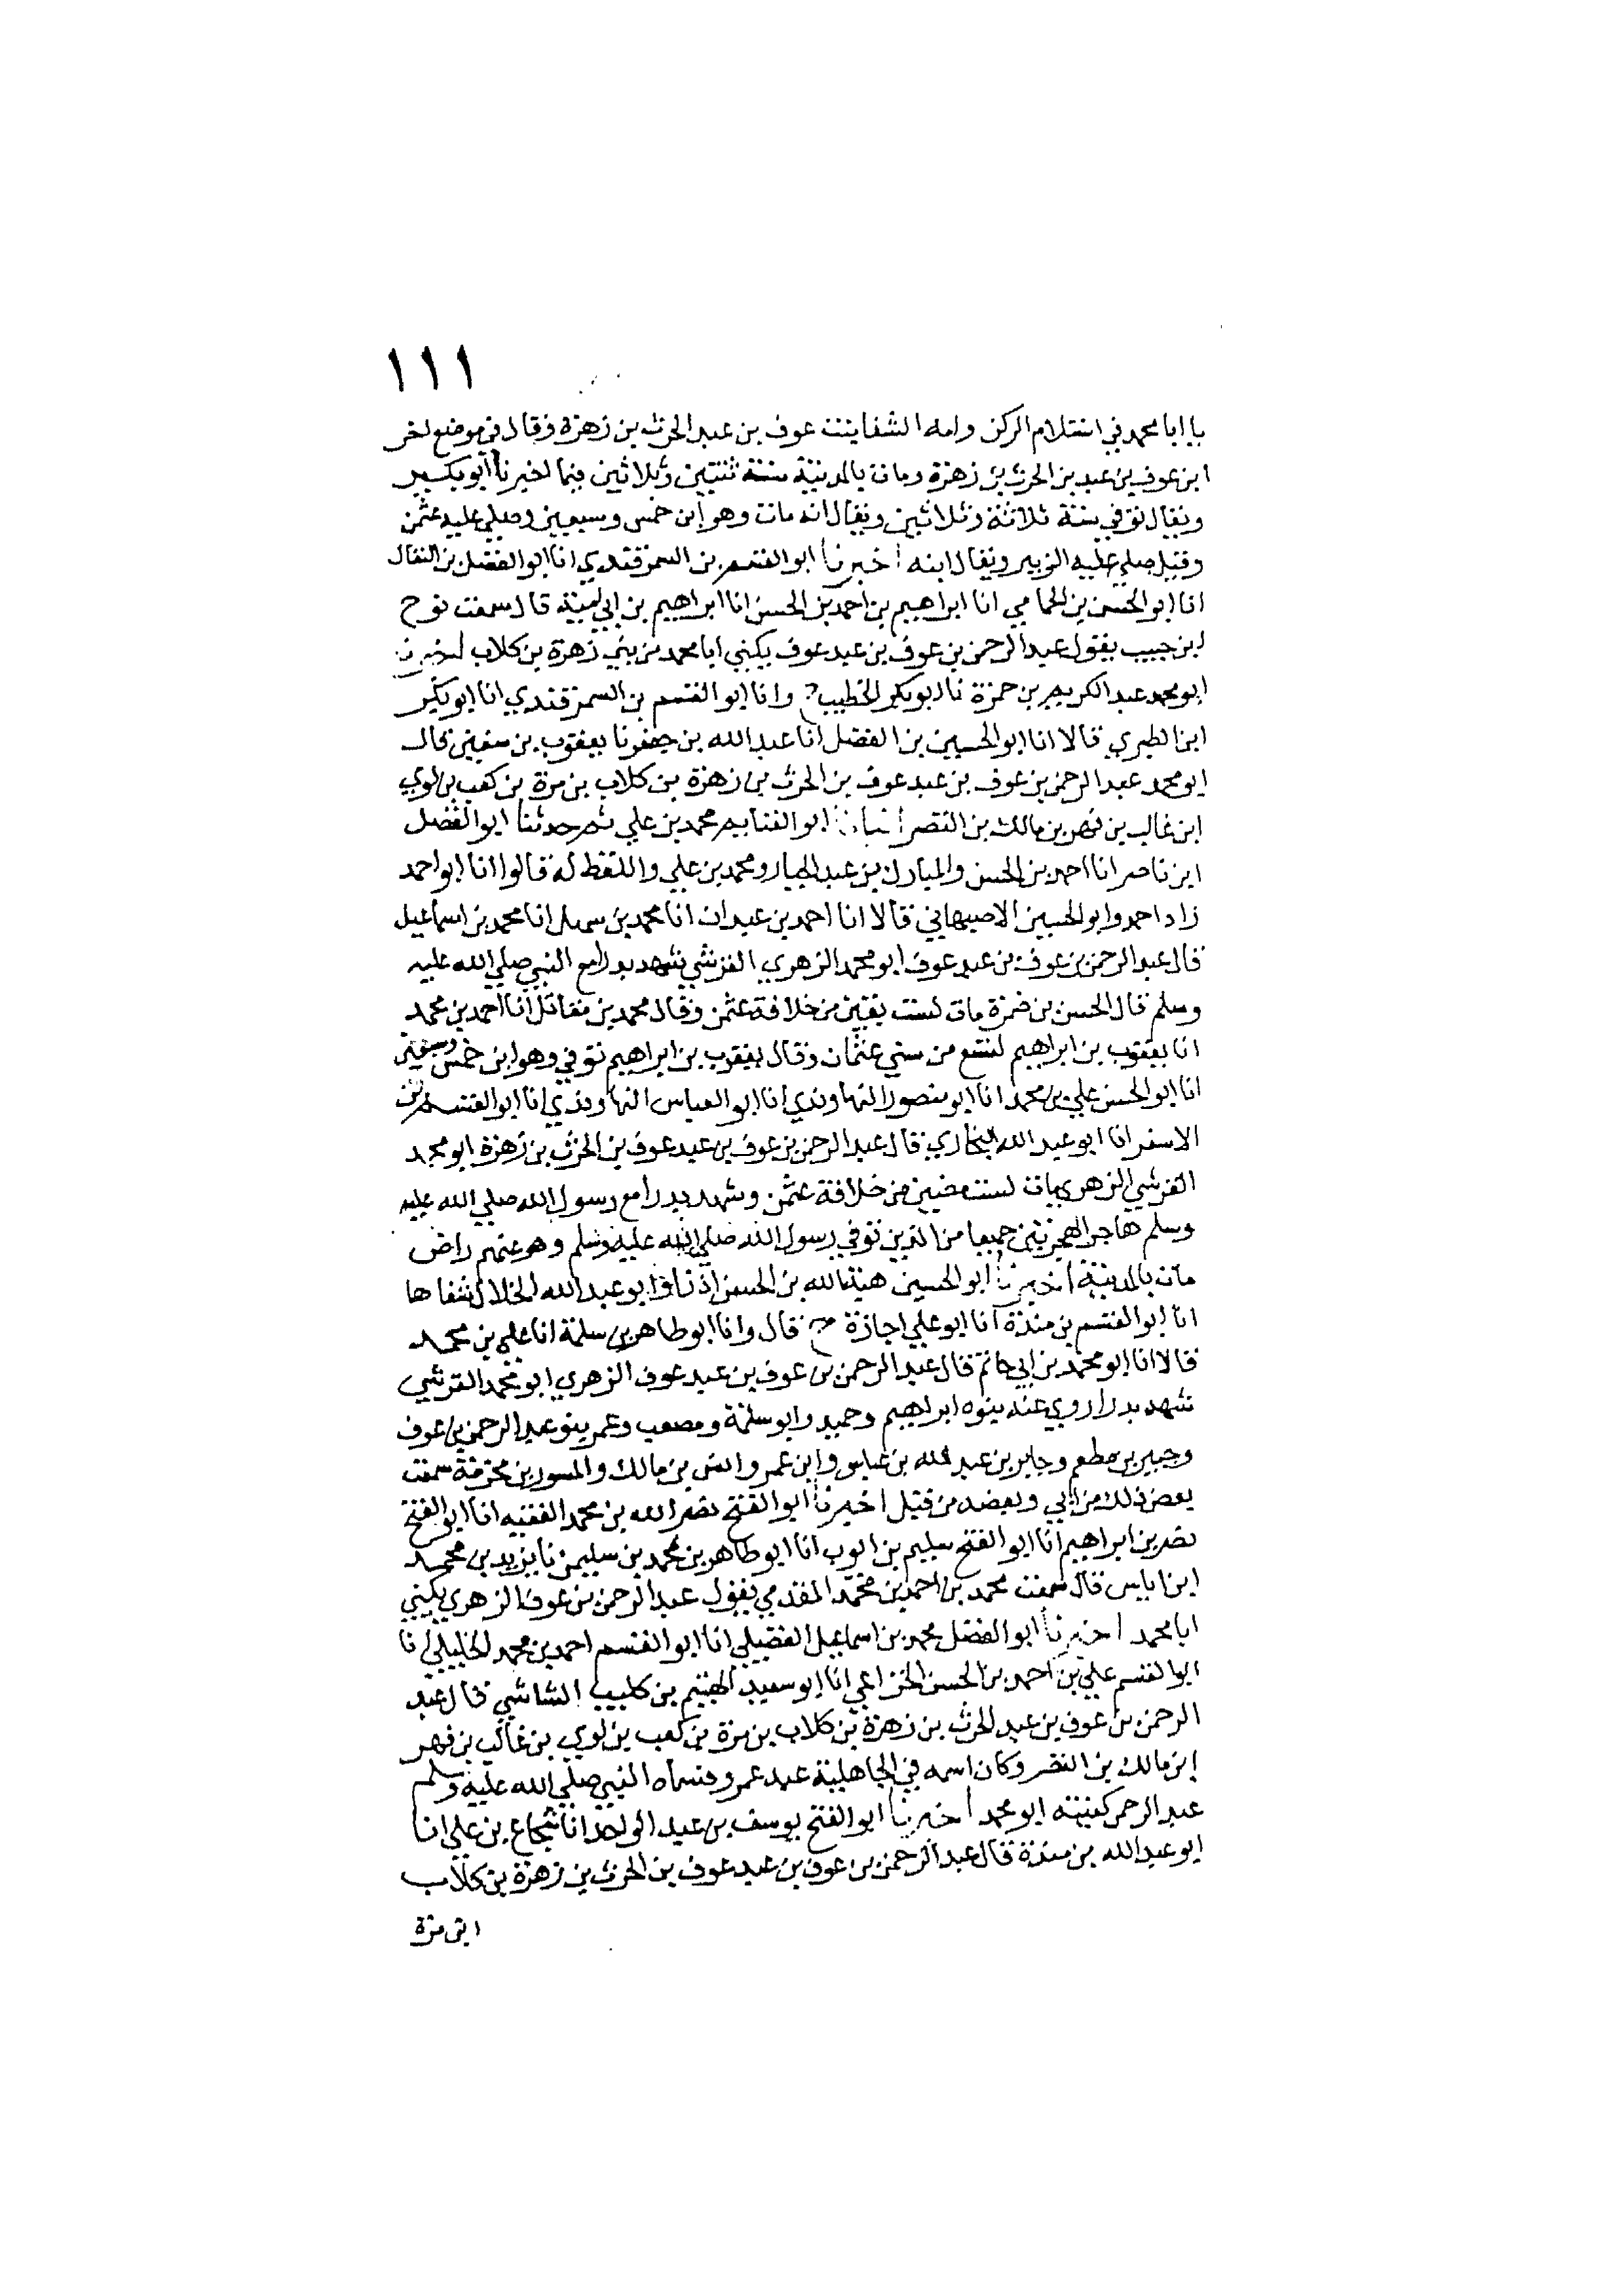 ١١١
يا ابا محمد في استلام الركن وامه الشفا بنت عوف بن عبد الحرث بن زهرة وقال في موضع اخر
ابن عوف بن عبد بن الحرث بن زهرة ومات بالمدينة سنة ثنتين وثلاثين فيما اخبرنا ابو بكير
ويقال توفي سنة ثلاثة وثلاثين ويقال انه مات وهو ابن خمس وسبعين وصلي عليه عثمن
وقيل صلي عليه الزبير ويقال ابنه اخبرنا ابو القسم بن السمرقندي انا ابو الفضل بن البقال
انا ابو الحسن بن الحمامي انا ابراهيم بن احمد بن الحسن انا ابراهيم بن ابي امية قال سمعت نوح
ابن حبيب يقول عبد الرحمن بن عوف بن عبد عوف يكني ابا محمد من بني زهرة بن كلاب اخبرنا
ابو محمد عبد الكريم بن حمزة نا ابو بكر الخطيب ح وانا ابو القسم بن السمرقندي انا ابو بكر
ابن الطبري قالا انا ابو الحسين بن الفضل انا عبد الله بن جعفر نا يعقوب بن سفين قال
ابو محمد عبد الرحمن بن عوف بن عبد عوف بن الحرث بن زهرة بن كلاب بن مرة بن كعب بن لوي
ابن غالب بن فهر بن مالك بن النضر انبانا ابو الغنايم محمد بن علي ثم حدثنا ابو الفضل
ابن ناصر انا احمد بن الحسن والمبارك بن عبد الجبار ومحمد بن علي واللفظ له قالوا انا ابو احمد
زاد احمد وابو الحسين الاصبهاني قالا انا احمد بن عبدان انا محمد بن سهل انا محمد بن اسماعيل
قال عبد الرحمن بن عوف بن عبد عوف ابو محمد الزهري القرشي شهد بدرا مع النبي صلي الله عليه
وسلم قال الحسن بن ضمرة مات لست بقين من خلافة عثمن وقال محمد بن مقاتل انا احمد بن محمد
انا يعقوب بن ابراهيم لتسع من سني عثمان وقال يعقوب بن ابراهيم توفي وهو ابن خمس وسبعين
انا ابو الحسن علي بن محمد انا ابو منصور النهاوندي انا ابو العباس النهاوندي انا ابو القسم بن
الاسقر انا ابو عبد الله البخاري قال عبد الرحمن بن عوف بن عبد عوف بن الحرث بن زهرة ابو محمد
القرشي الزهري مات لست مضين من خلافة عثمن وشهد بدرا مع رسول الله صلي الله عليه
وسلم هاجر الهجرتين جميعا من الذين توفي رسول الله صلي الله عليه وسلم وهو عنهم راض
مات بالمدينة اخبرنا ابو الحسين هبة الله بن الحسن اذنا وابو عبد الله الخلال شفاها
انا ابو القسم بن مندة انا ابو علي اجازة ح قال وانا ابو طاهر بن سلمة انا علي بن محمد
قالا انا ابو محمد بن ابي حاتم قال عبد الرحمن بن عوف بن عبد عوف الزهري ابو محمد القرشي
شهد بدرا روي عنه بنوه ابراهيم وحميد وابو سلمة ومصعب وعمر بنو عبد الرحمن بن عوف
وجبير بن مطعم وجابر بن عبد الله بن عباس وابن عمر وانس بن مالك والمسور بن مخرمة سمعت
بعض ذلك من ابي وبعضه من قبل اخبرنا ابو الفتح نصر الله بن محمد الفقيه انا ابو الفتح
نصر بن ابراهيم انا ابو الفتح سليم بن ايوب انا ابو طاهر بن محمد بن سليمن نا يزيد بن محمد
ابن اياس قال سمعت محمد بن احمد بن محمد المقدمي يقول عبد الرحمن بن عوف الزهري يكني
ابا محمد اخبرنا ابو الفضل محمد بن اسماعيل الفضيلي انا ابو القسم احمد بن محمد الخليلي انا
ابو القسم علي بن احمد بن الحسن الخزاعي انا ابو سعيد الهيثم بن كليب الشاشي قال عبد
الرحمن بن عوف بن عبد الحرث بن زهرة بن كلاب بن مرة بن كعب بن لوي بن غالب بن فهر
ابن مالك بن النضر وكان اسمه في الجاهلية عبد عمرو فسماه النبي صلي الله عليه وسلم
عبد الرحمن كنيته ابو محمد اخبرنا ابو الفتح يوسف بن عبد الواحد انا شجاع بن علي انا
ابو عبد الله بن مندة قال عبد الرحمن بن عوف بن عبد عوف بن الحرث بن زهرة بن كلاب
ابن مرة